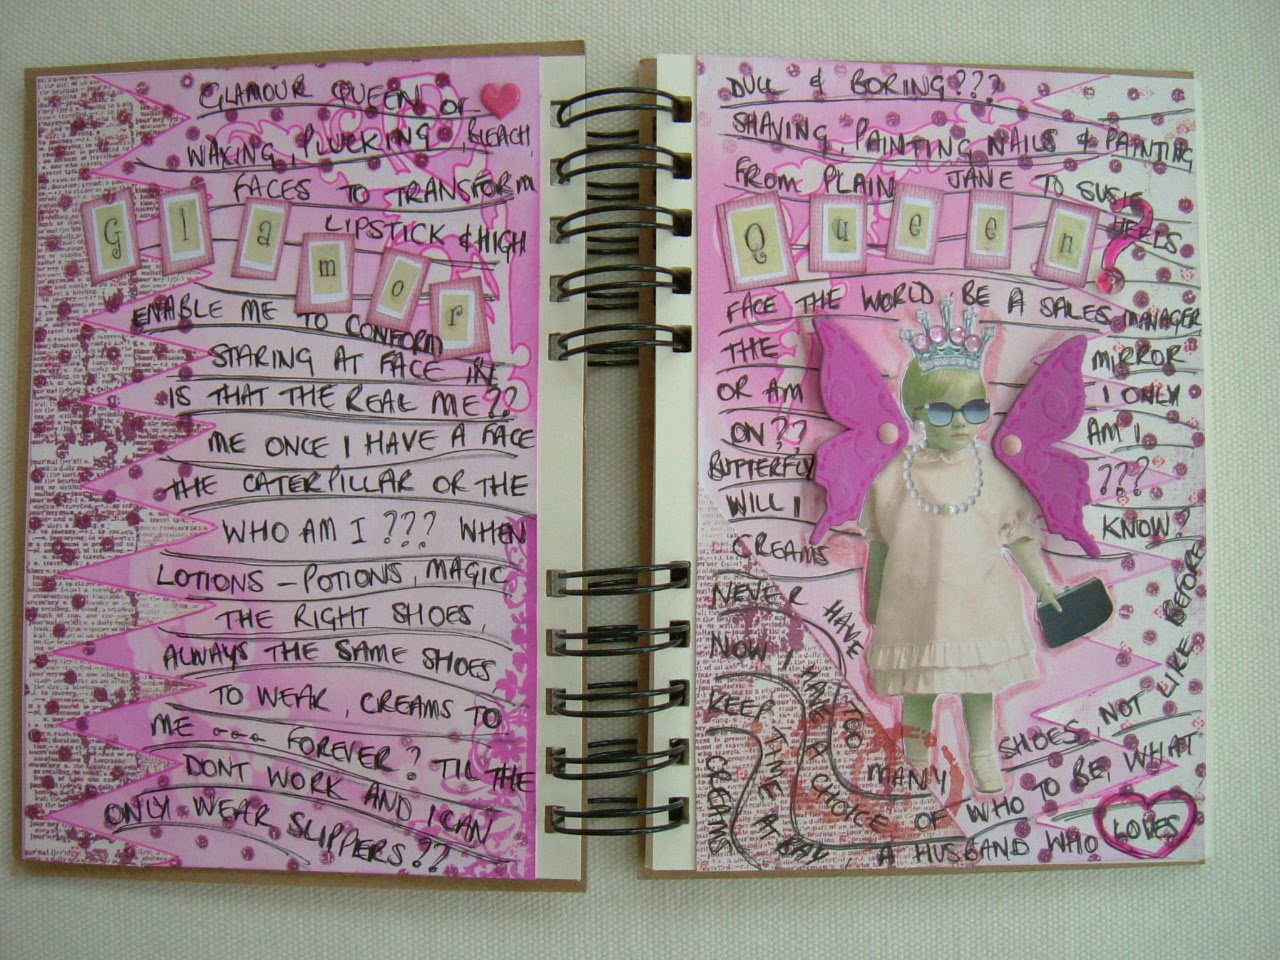 GLAMOUR QUEEN OR
WAXING, PLUCKING, BLEACH,
FACES TO TRANSFORM
LIPSTICK & HIGH
Glamor
ENABLE ME TO CONFORM
STARING AT FACE IN
IS THAT THE REAL ME??
ME ONCE I HAVE A FACE
THE CATERPILLAR OR THE
WHO AM I??? WHEN
LOTIONS - POTIONS, MAGIC
THE RIGHT SHOES,
ALWAYS THE SAME SHOES
TO WEAR, CREAMS TO
ME ooo FOREVER? TIL THE
DONT WORK AND I CAN
ONLY WEAR SLIPPERS??
DULL & BORING???
SHAVING, PAINTING NAILS & PAINTING
FROM PLAIN JANE TO SUSIE
HEELS
Queen?
FACE THE WORLD, BE A SALES MANAGER
THE MIRROR
OR AM I ONLY
ON?? AM I
BUTTERFLY ???
WILL I KNOW?
CREAMS
NEVER HAVE
NOW, I HAVE A CHOICE OF WHO TO BE, WHAT
TOO MANY SHOES, NOT LIKE BEFORE
KEEP TIME AT BAY
CREAMS
A HUSBAND WHO LOVES